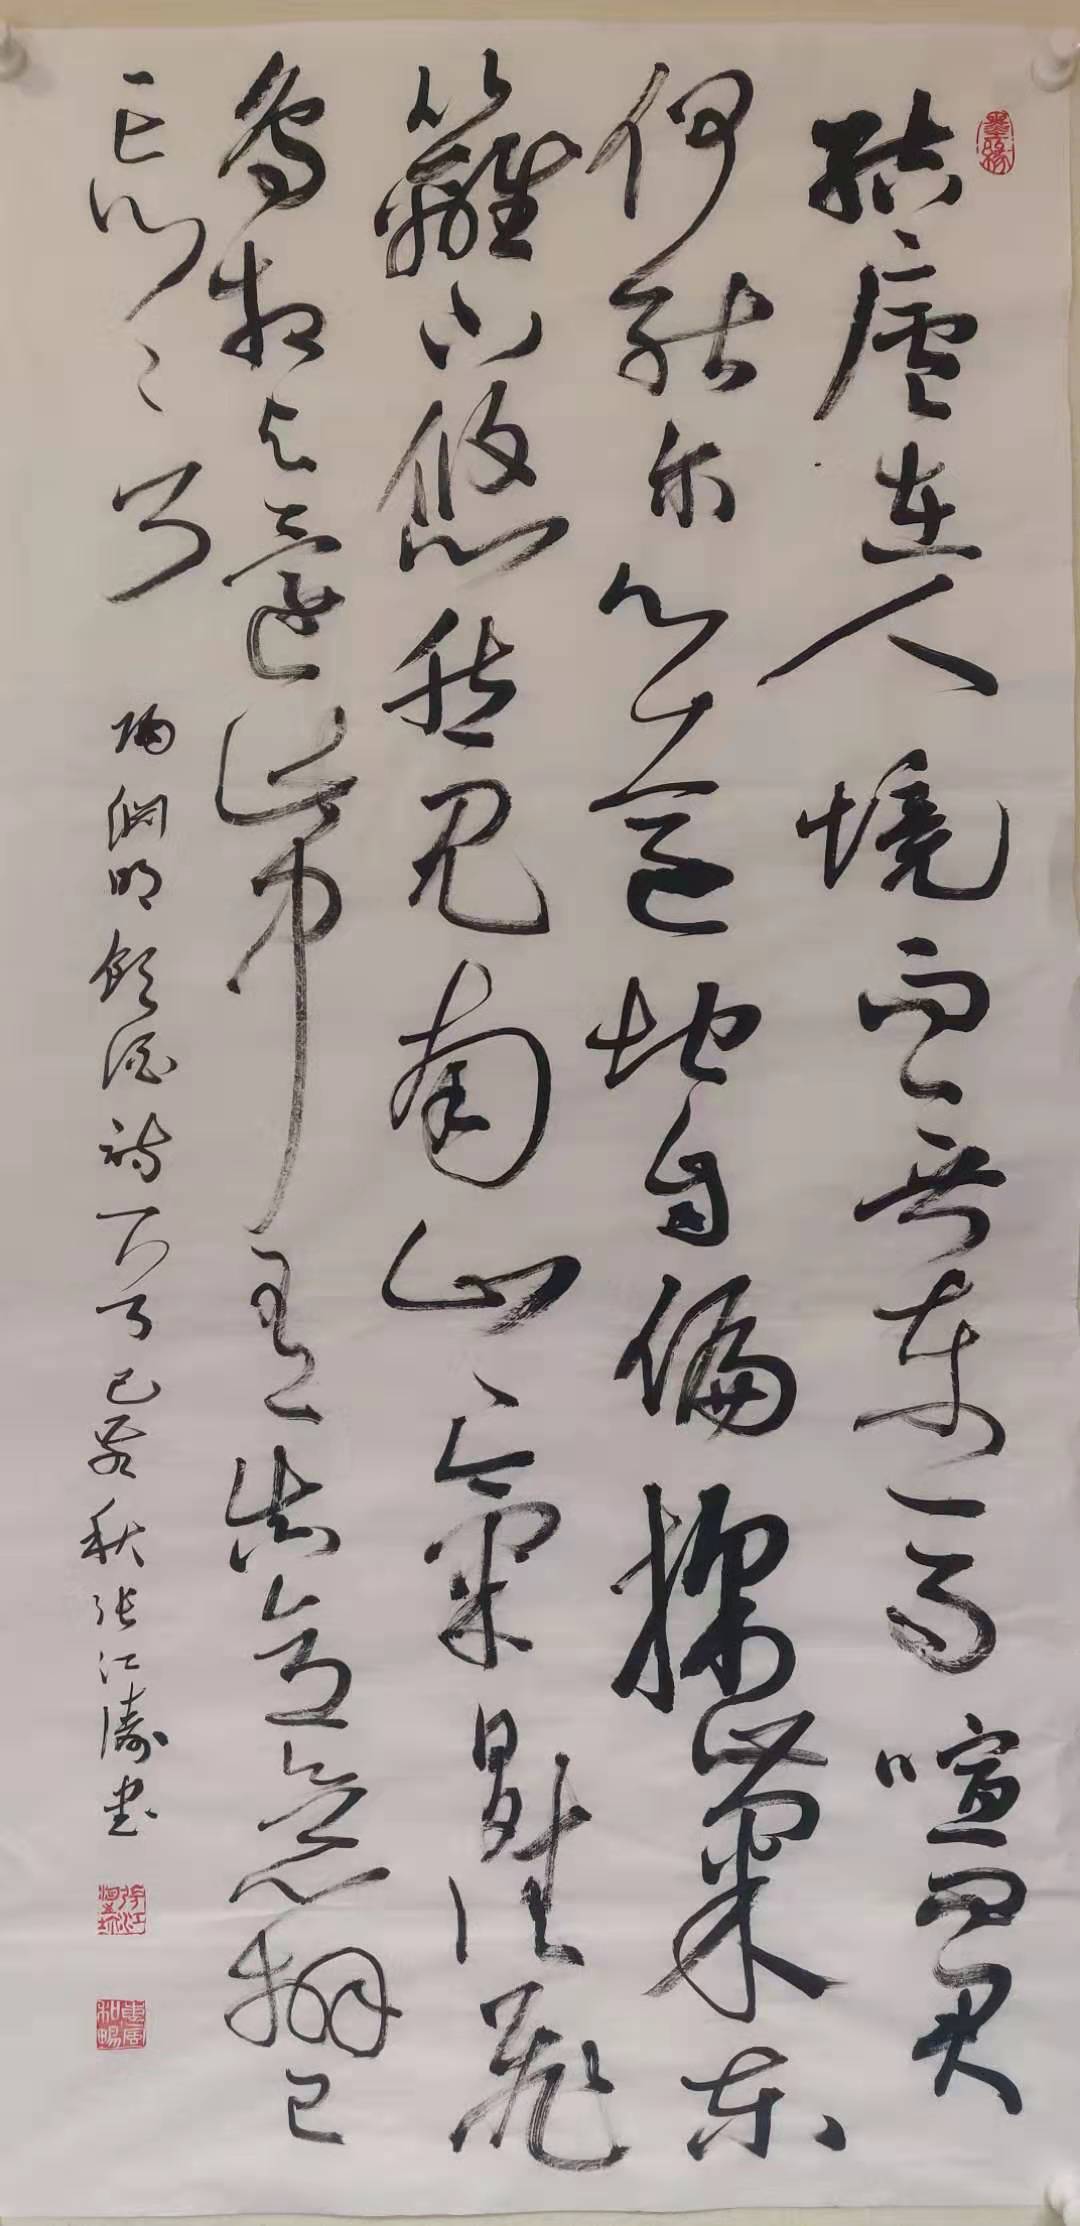 墨緣
結廬在人境而無車馬喧問君
何能尔心遠地自偏採菊東
籬下悠然見南山〻氣日夕佳飛
鳥相與還此中有真意欲辨已
忘言
陶淵明飲酒詩一首 己亥秋張江濤書
惠風和暢